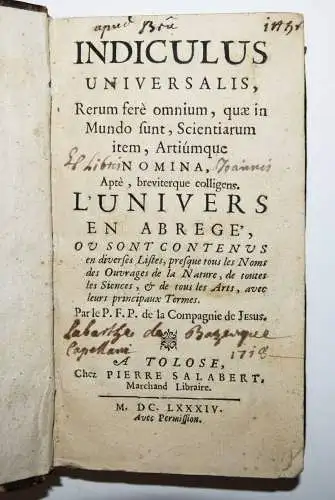 apud
INDICULUS
UNIVERSALIS,
Rerum ferè omnium, quæ in
Mundo sunt, Scientiarum
item, Artiúmque
Ex Libris NOMINA, Joannis
Aptè, breviterque colligens.
L'UNIVERS
EN ABREGE',
OU SONT CONTENUS
en diverses Listes, presque tous les Noms
des Ouvrages de la Nature, de toutes
les Siences, & de tous les Arts, avec
leurs principaux Termes.
Par le P. F. P. de la Compagnie de Jesus.
Labarthe de
Capellani
A TOLOSE,
Chez PIERRE SALABERT,
Marchand Libraire.
M. DC. LXXXIV.
Avec Permission.